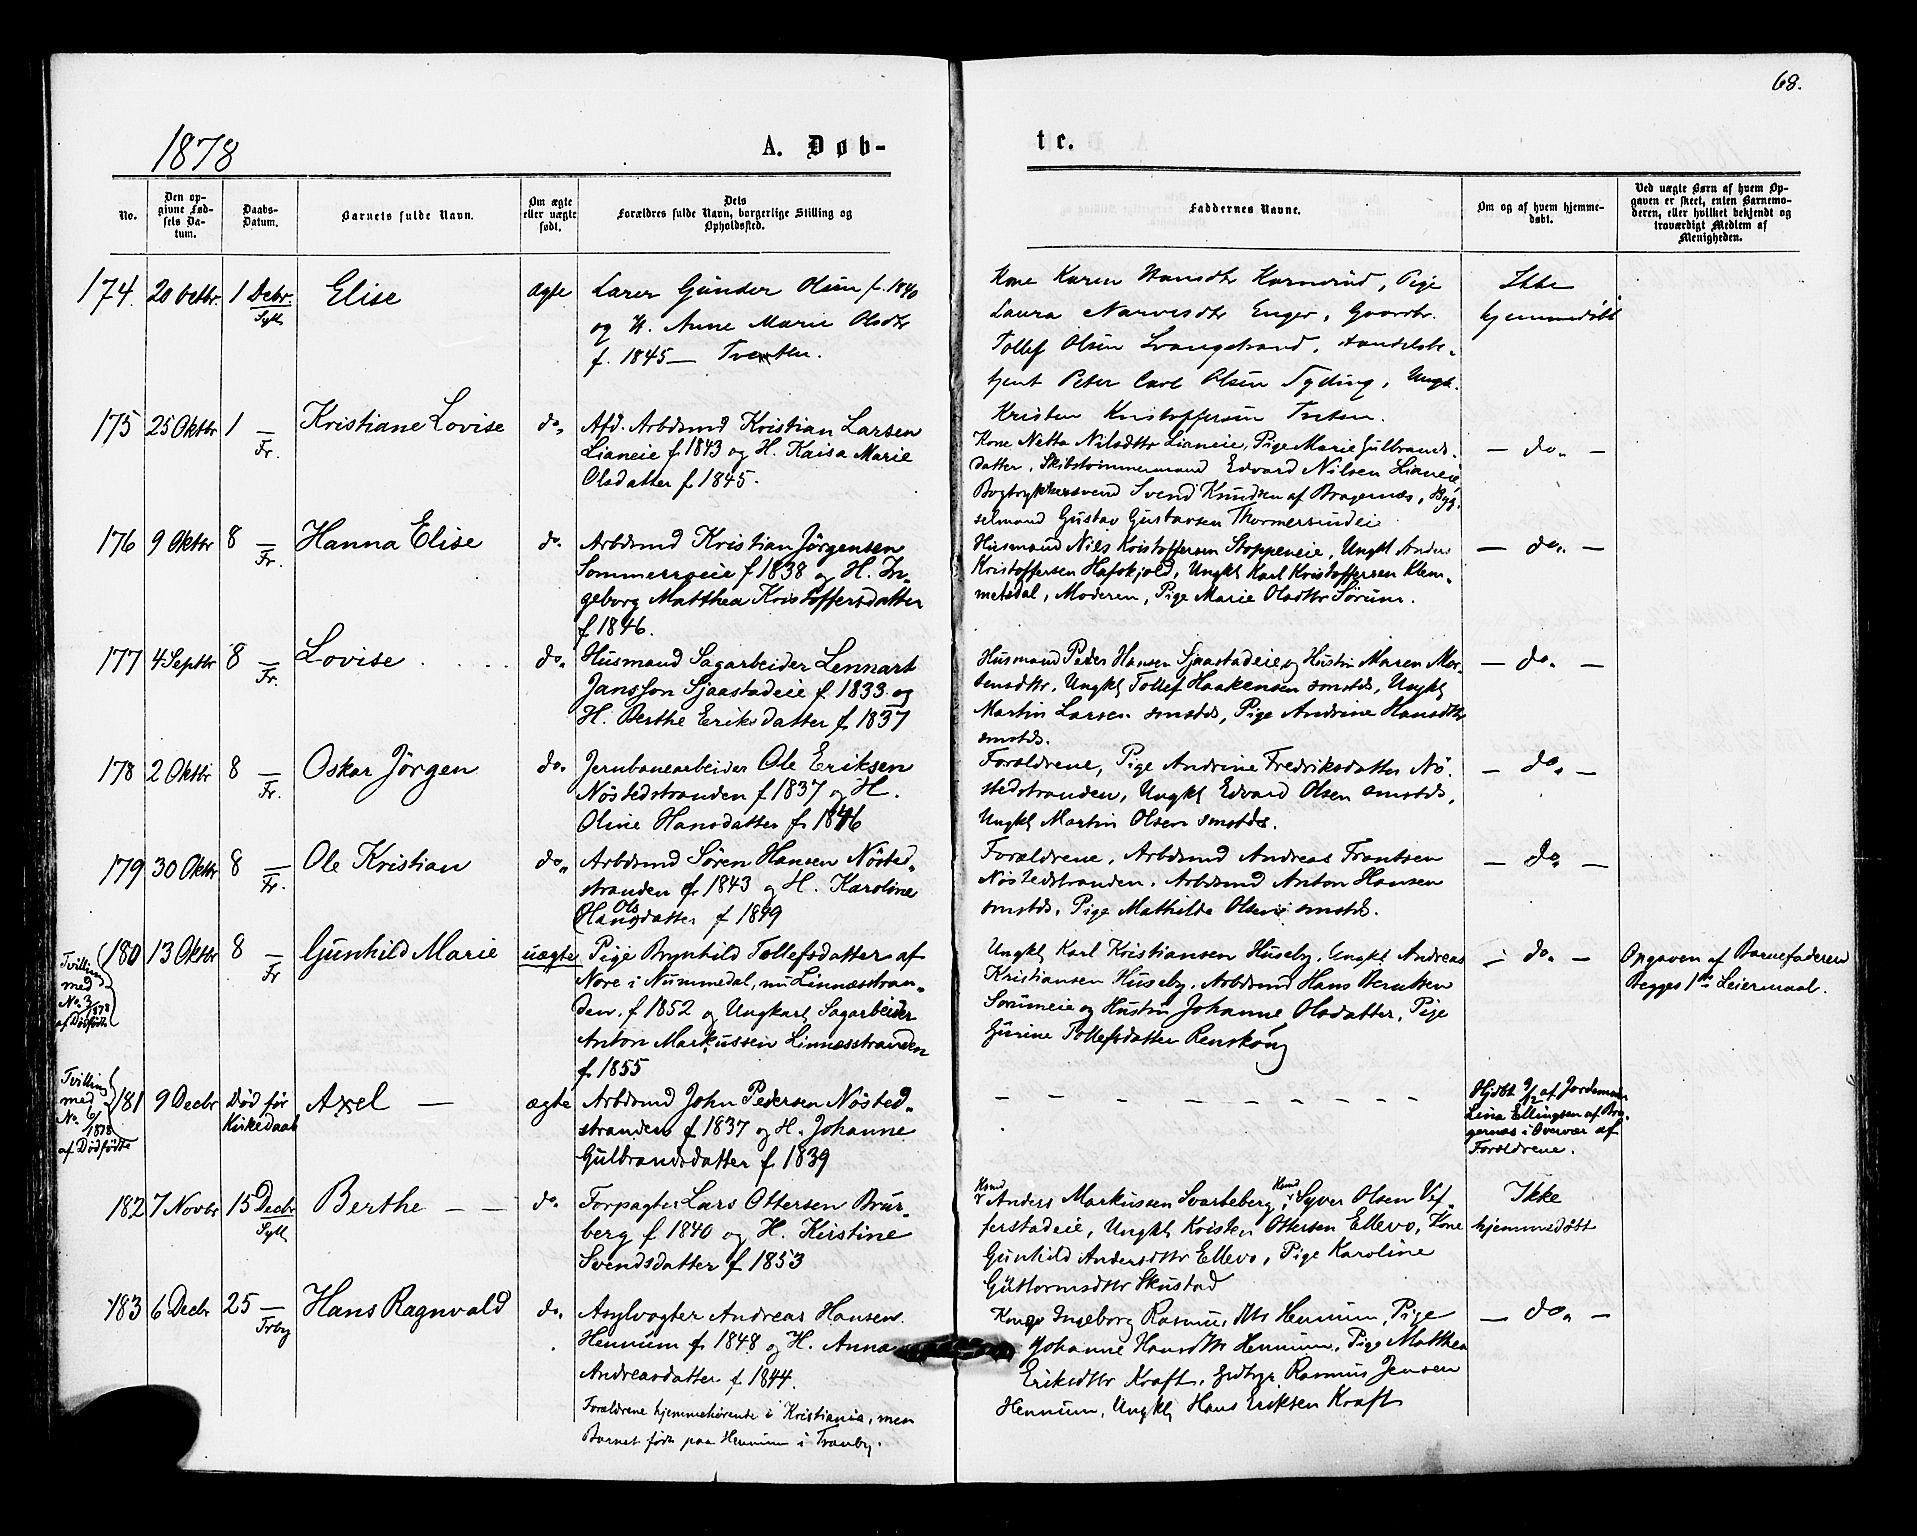 68.
1878
A. Døb-
te.
No.
Den op-
givne Fød-
sels Da-
tum.
Daabs-
Datum.
Barnets fulde Navn.
Om ægte
eller uægte
født.
Dets
Forældres fulde Navn, borgerlige Stilling og
Opholdssted.
Faddernes Navne.
Om og af hvem hjemme-
døbt.
Ved uægte Børn af hvem Op-
gaven er skeet, enten Barnemo-
deren, eller hvilket bekjendt og
troværdigt Medlem af
Menigheden.
174. 20 Octbr. 1 Decbr. Elise ægte
Syll
Lærer Gunder Olsen f. 1840
og H. Anne Marie Olsdtr
f. 1845 — Tveten.
Kone Karen Hansdtr Kornerud, Pige
Laura Narvesdtr Enger, Gaardbr.
Tollef Olsen Svangstrand, Handelsbe-
tjent Peter Carl Olsen Tyding, Ungk.
Kristen Kristoffersen Tveten.
Ikke
hjemmedøbt
175 25 Oktbr 1 — Kristiane Lovise do.
Fr.
Afd. Arbdsmd Kristian Larsen
Lianeie f. 1843 og H. Kaisa Marie
Olsdatter f 1845.
Kone Netta Nilsdttr Lianeie, Pige Marie Gulbrands-
datter, Skibstømmermand Edvard Nilsen Lianeie,
Bogtrykkersvend Svend Knudsen af Bragernæs, Byg-
selmand Gustav Gustavsen
— do. —
176 9 Oktbr 8 — Hanna Elise do.
Fr.
Arbdsmd Kristian Jørgensen
Sommerroeie f 1838 og H. In-
geborg Matthea Kristoffersdatter
f 1846.
Husmand Nils Kristoffersen Stoppeneie, Ungkl Anders
Kristoffersen Hafskjold, Ungkl Karl Kristoffersen Klem-
metsdal, Moderen, Pige Marie Olsdttr Sørum.
— do. —
177 4 Septbr 8 — Lovise do.
Fr.
Husmand Sagarbeider Lennart
Jansson Sjaastadeie f. 1833 og
H. Berthe Eriksdatter f 1837
Husmand Peder Hansen Sjaastadeie og Hustru Maren Mor-
tensdttr, Ungkl Tollef Haakensen smstds, Ungkl
Martin Larsen smstds, Pige Andrine Hansdttr
smstds.
— do. —
178 2 Oktbr 8 — Oskar Jørgen do.
Fr.
Jernbanearbeider Ole Eriksen
Nøstedstranden f 1837 og H.
Oline Hansdatter f. 1846
Forældrene, Pige Andrine Fredriksdatter Nø-
stedstranden, Ungkl Edvard Olsen smstds,
Ungkl Martin Olsen smstds.
— do. —
179 30 Oktbr 8 — Ole Kristian do.
Fr.
Arbdsmd Søren Hansen Nøsted-
stranden f. 1843 og H. Karoline
Ols
Hansdatter f 1849
Forældrene, Arbdsmd Andreas Frantsen
Nøstedstranden, Arbdsmd Anton Hansen
smstds, Pige Mathilde Olsen smstds.
— do. —
180 13 Oktbr 8 — Gunhild Marie uægte
Fr
Tvilling
med
No. 3
1878
af Dødfødte
Pige Brynhild Tollefsdatter af
Nore i Nummedal, nu Linnæsstran-
den. f. 1852 og Ungkarl Sagarbeider
Anton Markussen Linnæsstranden
f. 1855
Ungkl Karl Kristiansen Huseby, Ungkl Andreas
Kristiansen Huseby, Arbdsmd Hans Berntsen
Sørumeie og Hustru Johanne Olsdatter, Pige
Gunine Tollefsdatter Renskoug
— do. —
Opgaven af Barnefaderen
Begges 1ste Leiermaal.
Tvilling
med
No. 6
1878
af Dødfødte
181 9 Decbr Død før Axel — ægte
Kirkedaab
Arbdsmd John Pedersen Nøsted-
stranden f 1837 og H. Johanne
Gulbrandsdatter f 1839
— — — — — — — — — —
Hjdbt 9/12 af Jordemoder
Lina Ellingsen af Bra-
gernæs i Overvær af
Forældrene.
182 7 Novbr 15 Decbr Berthe — — do.
Syll
Forpagter Lars Ottersen Brur-
berg f 1840 og H. Kirstine
Svendsdatter f. 1853
Anders Markussen Svarteberg, Syver Olsen Vef-
ferstadeie, Ungkl Kristen Ottersen Ellevo, Kone
Gunhild Andersdttr Ellevo, Pige Karoline
Guttormsdttr Skustad
Ikke
hjemmedøbt
183 6 Decbr 25 — Hans Ragnvald do.
Trby
Asylvogter Andreas Hansen
Hennum f. 1848 og H. Anna
Andreasdatter f. 1844.
Forældrene hjemmehørende i Kristiania, men
Barnet født paa Hennum i Tranby.
Kone Ingeborg Rasmusdttr Hennum, Pige
Johanne Hansdttr Hennum, Pige Matthea
Eriksdttr Kraft, Rasmus Jensen
Hennum, Ungkl Hans Eriksen Kraft
— do. —